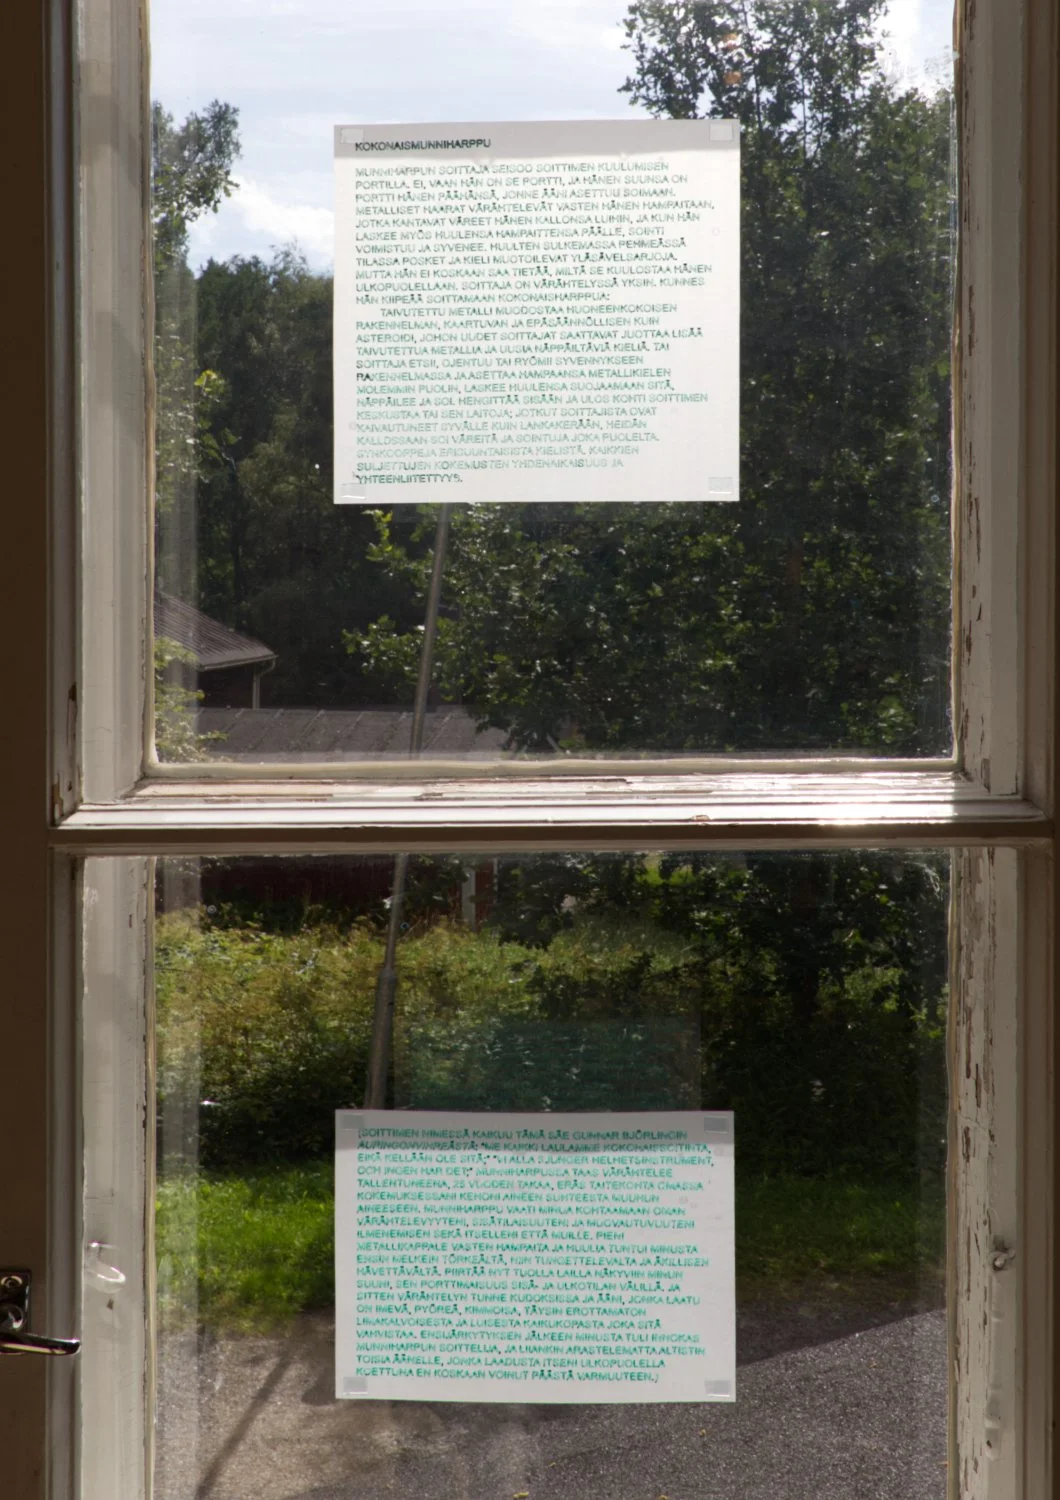 KOKONAISMUNNIHARPPU
MUNNIHARPUN SOITTAJA SEISOO SOITTIMEN KUULUMISEN
PORTILLA. EI, VAAN HÄN ON SE PORTTI, JA HÄNEN SUUNSA ON
PORTTI HÄNEN PÄÄHÄNSÄ, JONNE ÄÄNI ASETTUU SOIMAAN.
METALLISET HAARAT VÄRÄHTELEVÄT VASTEN HÄNEN HAMPAITAAN,
JOTKA KANTAVAT VÄREET HÄNEN KALLONSA LUIHIN, JA KUN HÄN
LASKEE MYÖS HUULENSA HAMPAITTENSA PÄÄLLE, SOINTI
VOIMISTUU JA SYVENEE. HUULTEN SULKEMASSA PEHMEÄSSÄ
TILASSA POSKET JA KIELI MUOTOILEVAT YLÄSÄVELSARJOJA.
MUTTA HÄN EI KOSKAAN SAA TIETÄÄ, MILTÄ SE KUULOSTAA HÄNEN
ULKOPUOLELLAAN. SOITTAJA ON VÄRÄHTELYSSÄ YKSIN. KUNNES
HÄN KIIPEÄÄ SOITTAMAAN KOKONAISHARPPUA:
TAIVUTETTU METALLI MUODOSTAA HUONEENKOKOISEN
RAKENNELMAN, KAARTUVAN JA EPÄSÄÄNNÖLLISEN KUIN
ASTEROIDI, JOHON UUDET SOITTAJAT SAATTAVAT JUOTTAA LISÄÄ
TAIVUTETTUA METALLIA JA UUSIA NÄPPÄILTÄVIÄ KIELIÄ. TAI
SOITTAJA ETSII, OJENTUU TAI RYÖMII SYVENNYKSEEN
RAKENNELMASSA JA ASETTAA HAMPAANSA METALLIKIELEN
MOLEMMIN PUOLIN, LASKEE HUULENSA SUOJAAMAAN SITÄ,
NÄPPÄILEE JA SOI. HENGITTÄÄ SISÄÄN JA ULOS KOHTI SOITTIMEN
KESKUSTAA TAI SEN LAITOJA; JOTKUT SOITTAJISTA OVAT
KAIVAUTUNEET SYVÄLLE KUIN LANKAKERÄÄN, HEIDÄN
KALLOSSAAN SOI VÄREITÄ JA SOINTUJA JOKA PUOLELTA.
SYNKOOPPEJA ERISUUNTAISISTA KIELISTÄ. KAIKKIEN
SULJETTUJEN KOKEMUSTEN YHDENAIKAISUUS JA
YHTEENLIITETTYYS.
(SOITTIMEN NIMESSÄ KAIKUU TÄMÄ SÄE GUNNAR BJÖRLINGIN
AURINGONVIHREÄSTÄ: "ME KAIKKI LAULAMME KOKONAISSOITINTA,
EIKÄ KELLÄÄN OLE SITÄ;" "VI ALLA SJUNGER HELHETSINSTRUMENT,
OCH INGEN HAR DET;" MUNNIHARPUSSA TAAS VÄRÄHTELEE
TALLENTUNEENA, 25 VUODEN TAKAA, ERÄS TAITEKOHTA OMASSA
KOKEMUKSESSANI KEHONI AINEEN SUHTEESTA MUUHUN
AINEESEEN. MUNNIHARPPU VAATI MINUA KOHTAAMAAN OMAN
VÄRÄHTELEVYYTENI, SISÄTILAISUUTENI JA MUOVAUTUVUUTENI
ILMENEMISEN SEKÄ ITSELLENI ETTÄ MUILLE. PIENI
METALLIKAPPALE VASTEN HAMPAITA JA HUULIA TUNTUI MINUSTA
ENSIN MELKEIN TÖRKEÄLTÄ, NIIN TUNGETTELEVALTA JA ÄKILLISEN
HÄVETTÄVÄLTÄ. PIIRTÄÄ NYT TUOLLA LAILLA NÄKYVIIN MINUN
SUUNI, SEN PORTTIMAISUUS SISÄ- JA ULKOTILAN VÄLILLÄ, JA
SITTEN VÄRÄHTELYN TUNNE KUDOKSISSA JA ÄÄNI, JONKA LAATU
ON IMEVÄ, PYÖREÄ, KIMMOISA, TÄYSIN EROTTAMATON
LIMAKALVOISESTA JA LUISESTA KAIKUKOPASTA JOKA SITÄ
VAHVISTAA. ENSIJÄRKYTYKSEN JÄLKEEN MINUSTA TULI INNOKAS
MUNNIHARPUN SOITTELIJA, JA LIIANKIN ARASTELEMATTA ALTISTIN
TOISIA ÄÄNELLE, JONKA LAADUSTA ITSENI ULKOPUOLELLA
KOETTUNA EN KOSKAAN VOINUT PÄÄSTÄ VARMUUTEEN.)